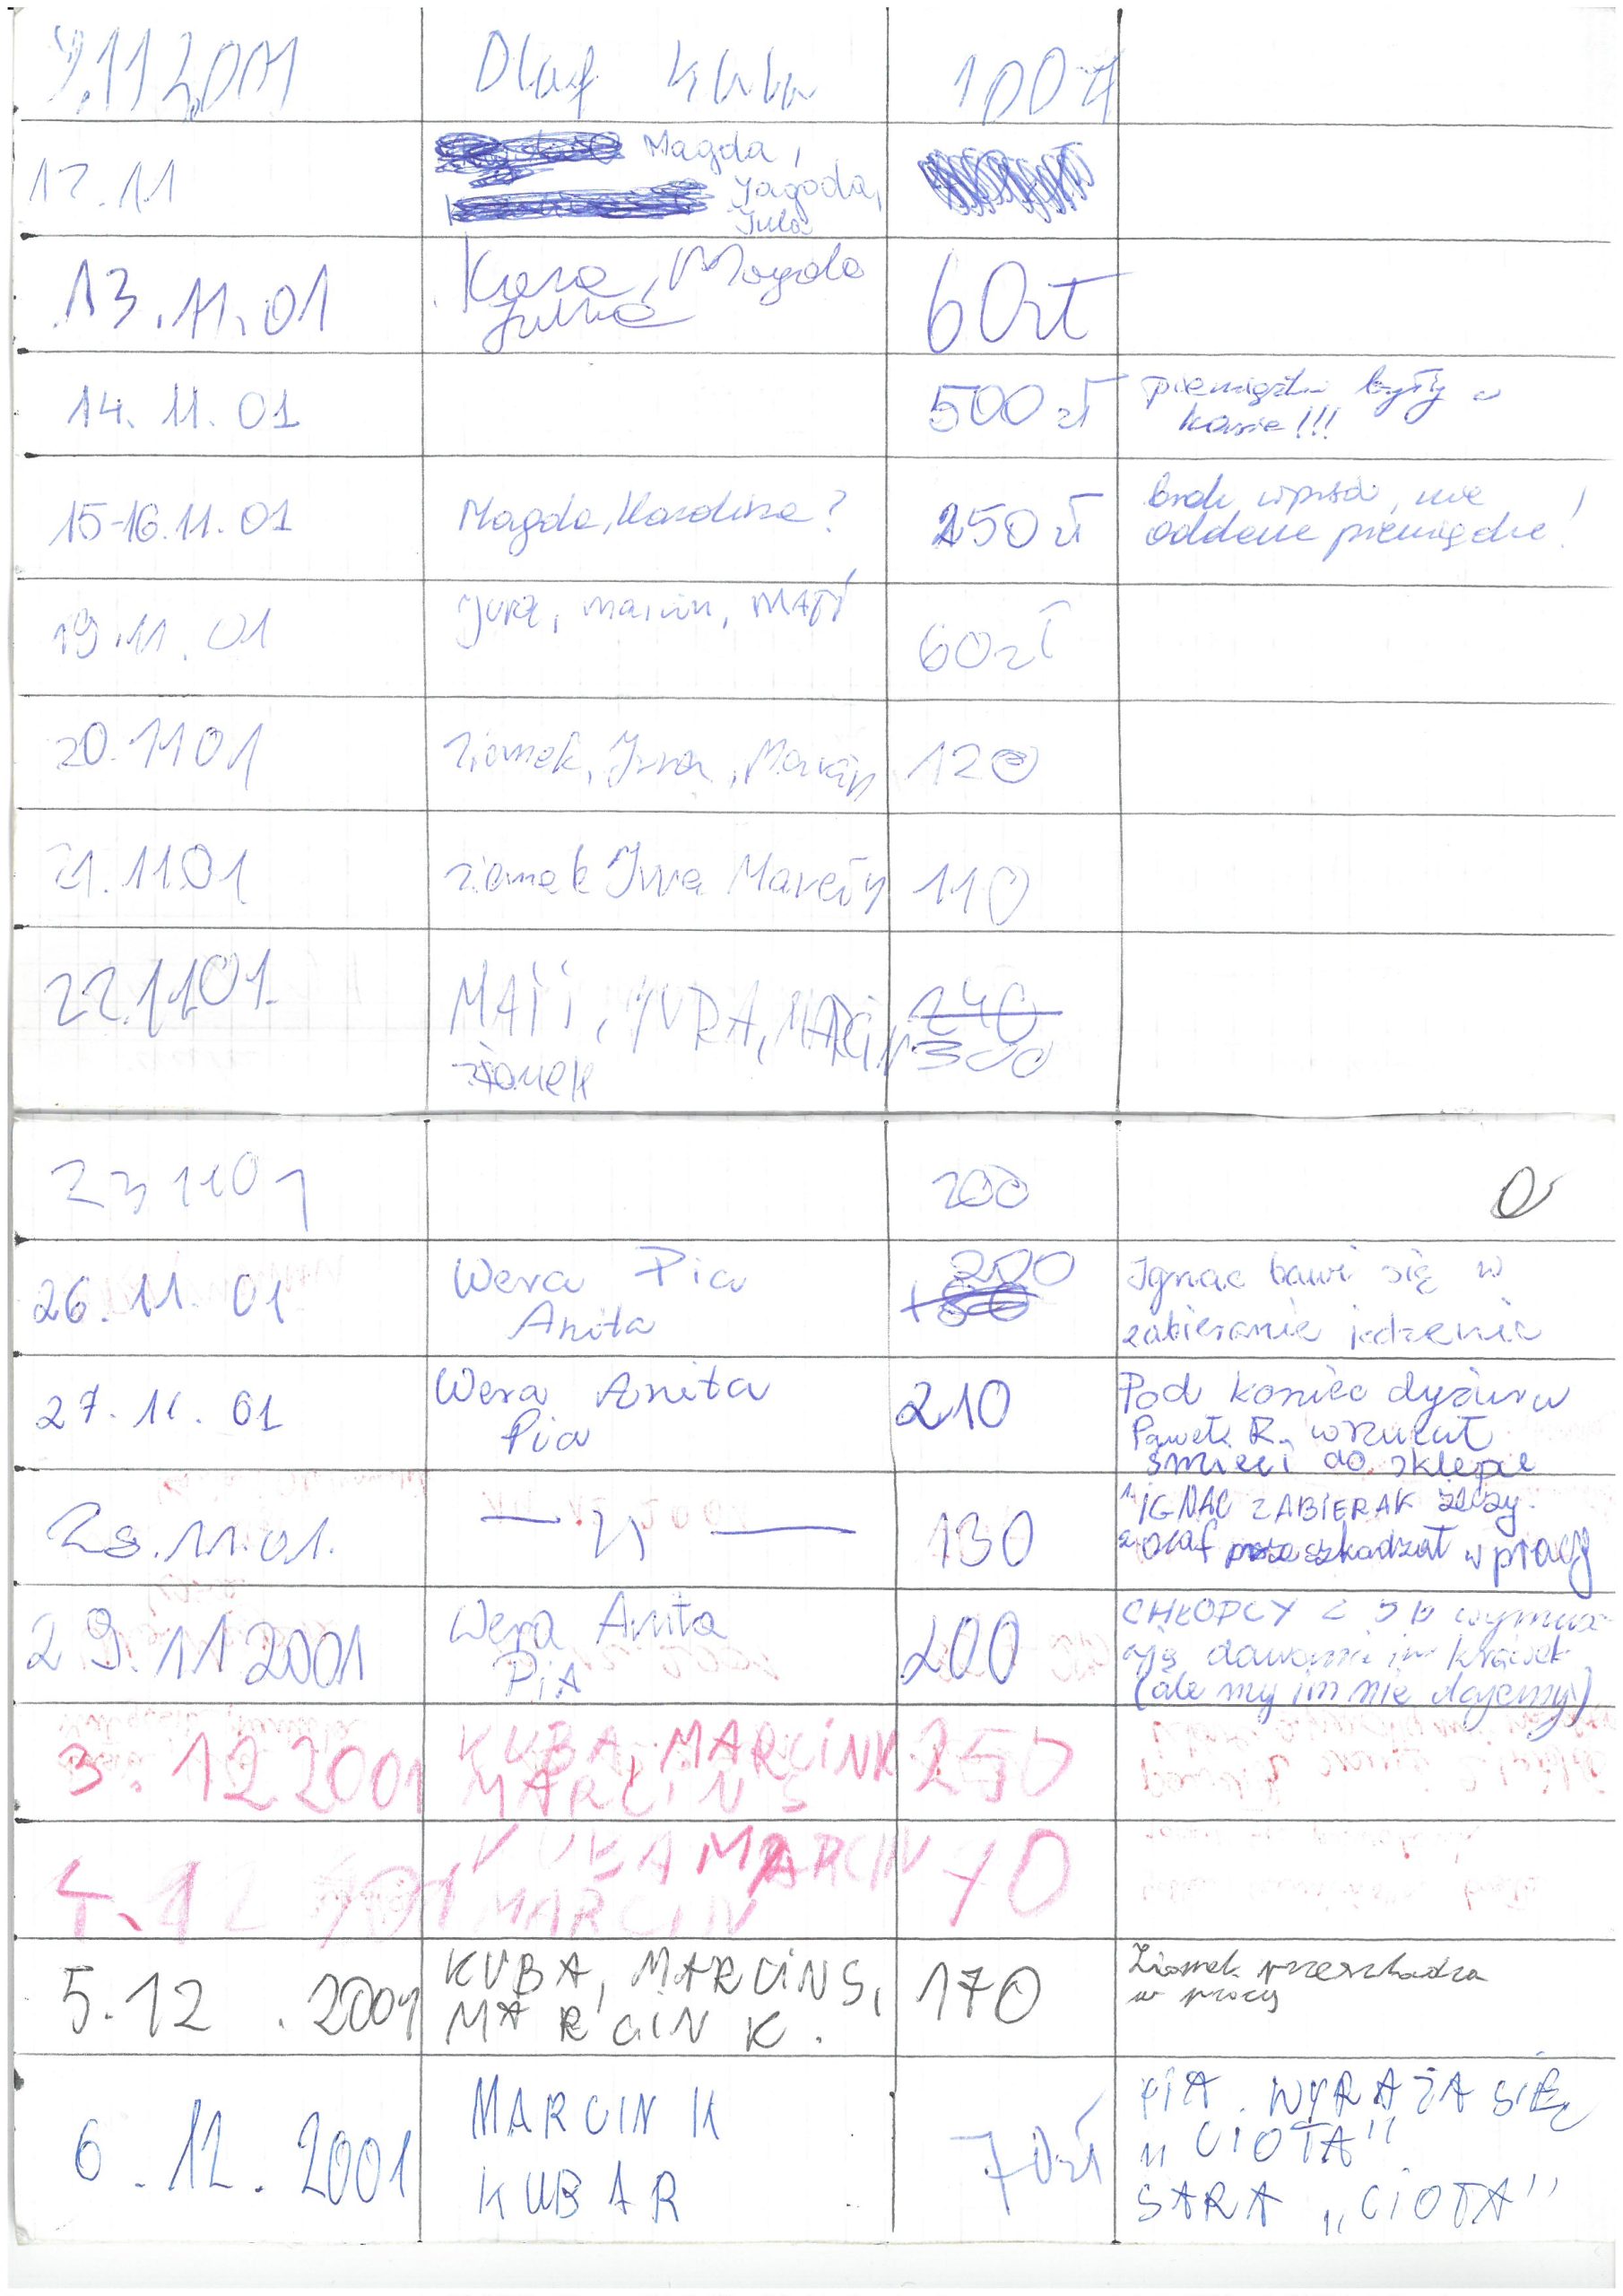 9.11 2001 Olaf Kuba 100 zł
12.11 Magda,
Jagoda,
Jula
13.11.01 Kasia, Magda 60 zł
Julka
14.11.01 500 zł pieniądze były w
kasie!!!
15-16.11.01 Magda, Karolina? 250 zł brak wpisu, nie
oddane pieniądze!
19.11.01 Jura, Marcin, MATi 60 zł
20.11 01 Ziomek, Jura, Marcin 120
21.11.01 Ziomek Jura 110
22.11.01. MATi, JURA, MARCiN 240
Ziomek 300
23 11 01 200
26.11.01 Wera Pia 200 Ignac bawi się w
Anita zabieranie jedzenia
27.11.01 Wera Anita 210 Pod koniec dyżuru
Pia Paweł R. wrzucał
śmieci do sklepie
28.11.01. — 11 — 130 1. IGNAC ZABIERAK
2 OLAF przeszkadzał w pracy
29.11 2001 Wera Anita 200 CHŁOPCY Z 5 b wymusz-
PiA ają dawanie im krówek
(ale my im nie dajemy)
3.12 2001 KUBA, MARCiN K 250
MARCiN S
4.12 2001 KUBA MARCIN 70
MARCIN
5.12.2001 KUBA, MARCiN S, 170 Ziomek przeszkadza
MARCiN K. w pracy
6.12.2001 MARCIN K 70 zł PiA WYRAŻA SIĘ
KUBA R „CIOTA”
SARA „CIOTA”